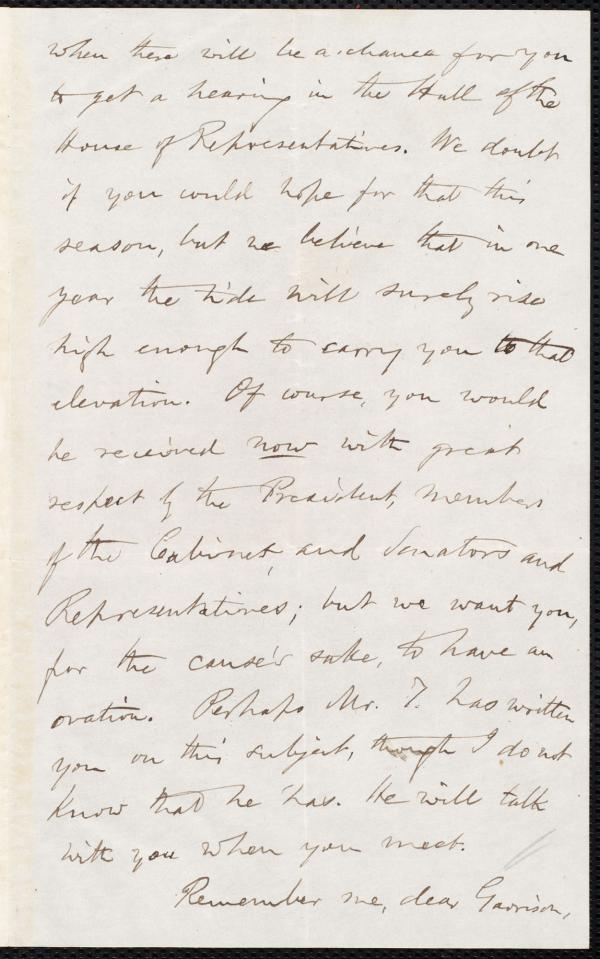 when there will be a chance for you
to get a hearing in the Hall of the
House of Representatives. We doubt
if you could hope for that this
season, but we believe that in one
year the tide will surely rise
high enough to carry you to that
elevation. Of course, you would
be received now with great
respect by the President, members
of the Cabinet, and Senators and
Representatives; but we want you,
for the cause's sake, to have an
ovation. Perhaps Mr. T. has written
you on this subject, though I do not
know that he has. He will talk
with you when you meet.
Remember me, dear Garrison,